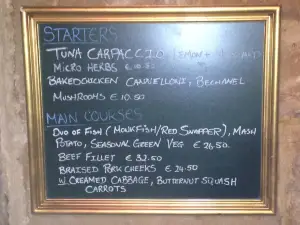 STARTERS
TUNA CARPACCIO LEMON
MICRO HERBS €
BAKED CHICKEN CANNELLONI, BECHAMEL
MUSHROOMS € 10.50
MAIN COURSES
DUO OF FISH (MONKFISH/RED SNAPPER), MASH
POTATO, SEASONAL GREEN VEG € 26.50
BEEF FILLET € 32.50
BRAISED PORK CHEEKS € 24.50
W. CREAMED CABBAGE, BUTTERNUT SQUASH
CARROTS